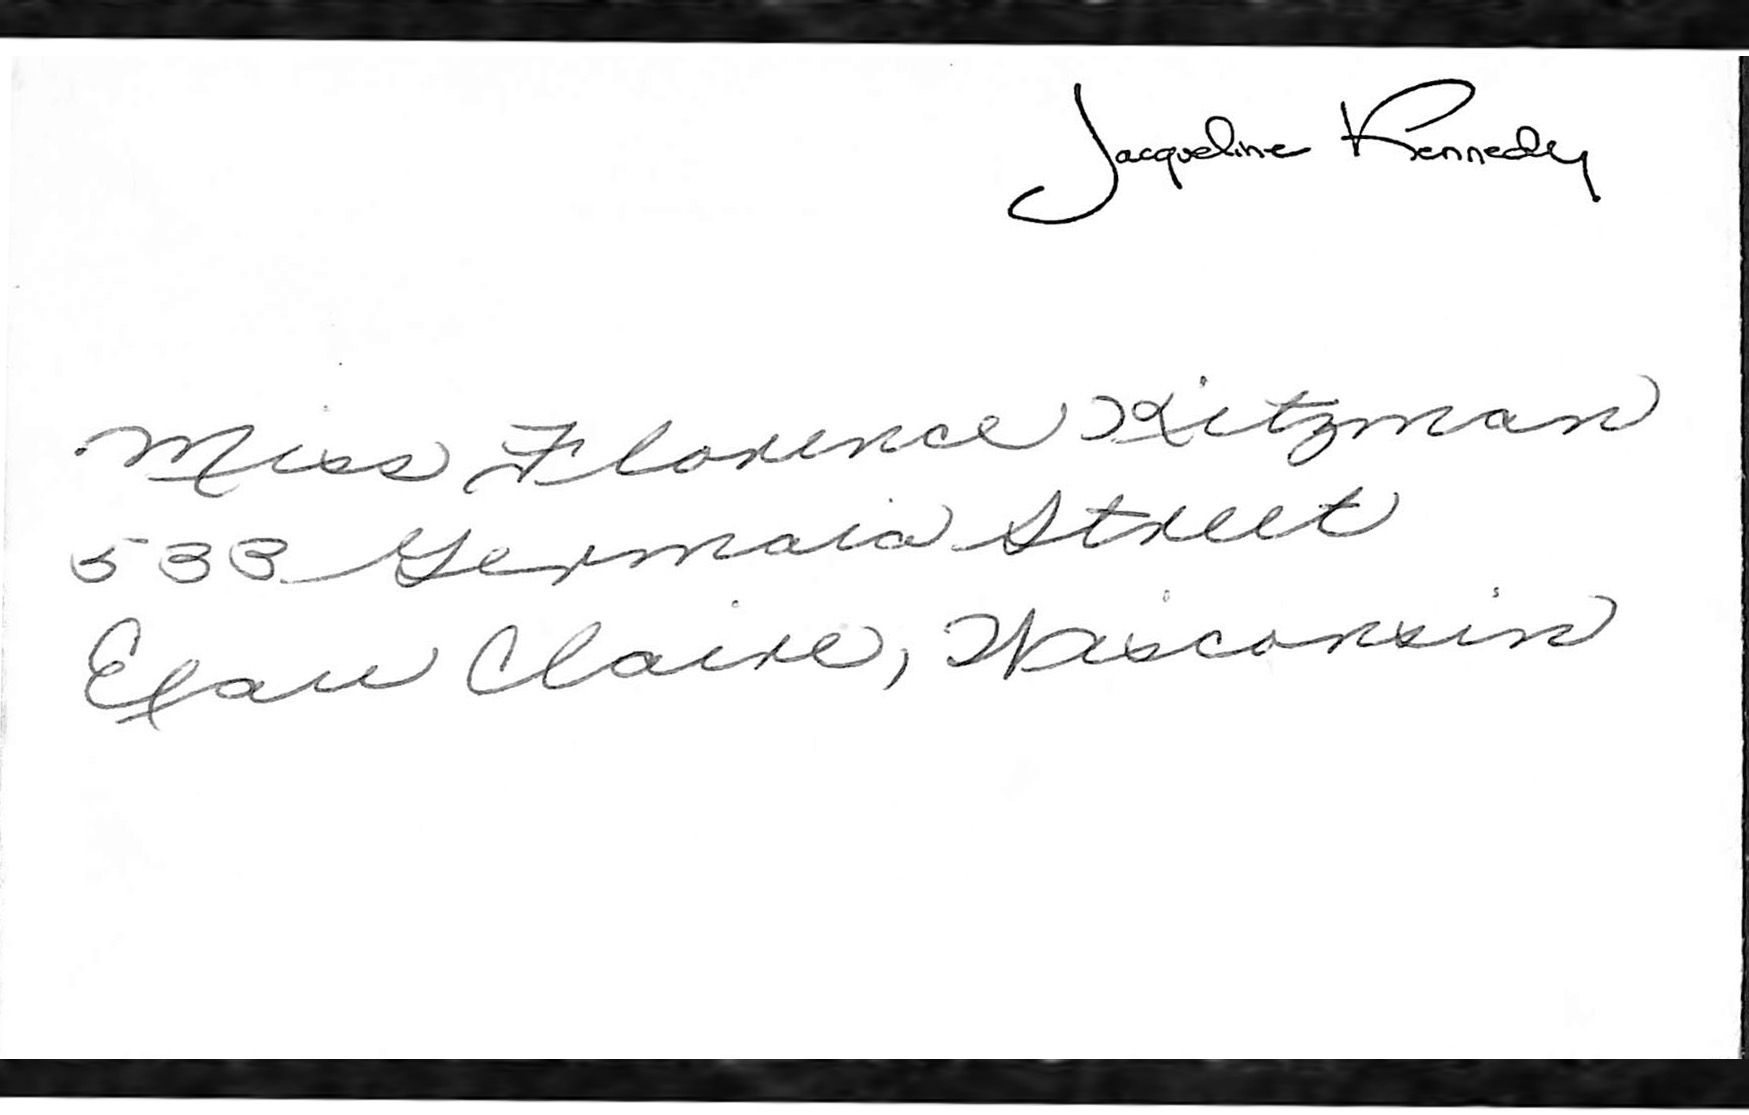 Jacqueline Kennedy
Miss Florence Kitzman
533 Germaia Street
Eau Claire, Wisconsin